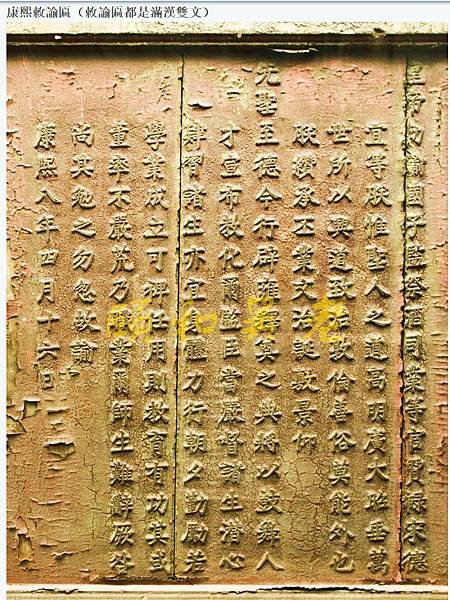 康熙敕諭匾（敕諭匾都是滿漢雙文）
皇帝勅諭國子監祭酒司業等官賈祿宋德
宜等朕惟聖人之道高明廣大昭垂萬
世所以興道致治敦倫善俗莫能外也
朕纘承丕業文治誕敷景仰
先聖至德今行辟雍釋奠之典將以鼓舞人
才宣布教化爾監臣當嚴督諸生潛心
肄習諸生亦宜身體力行朝夕勤勵若
學業成立可裨任用則教育有功其或
董率不嚴荒乃業爾師生難辭厥咎
尚其勉之勿忽故諭
康熙八年四月十六日